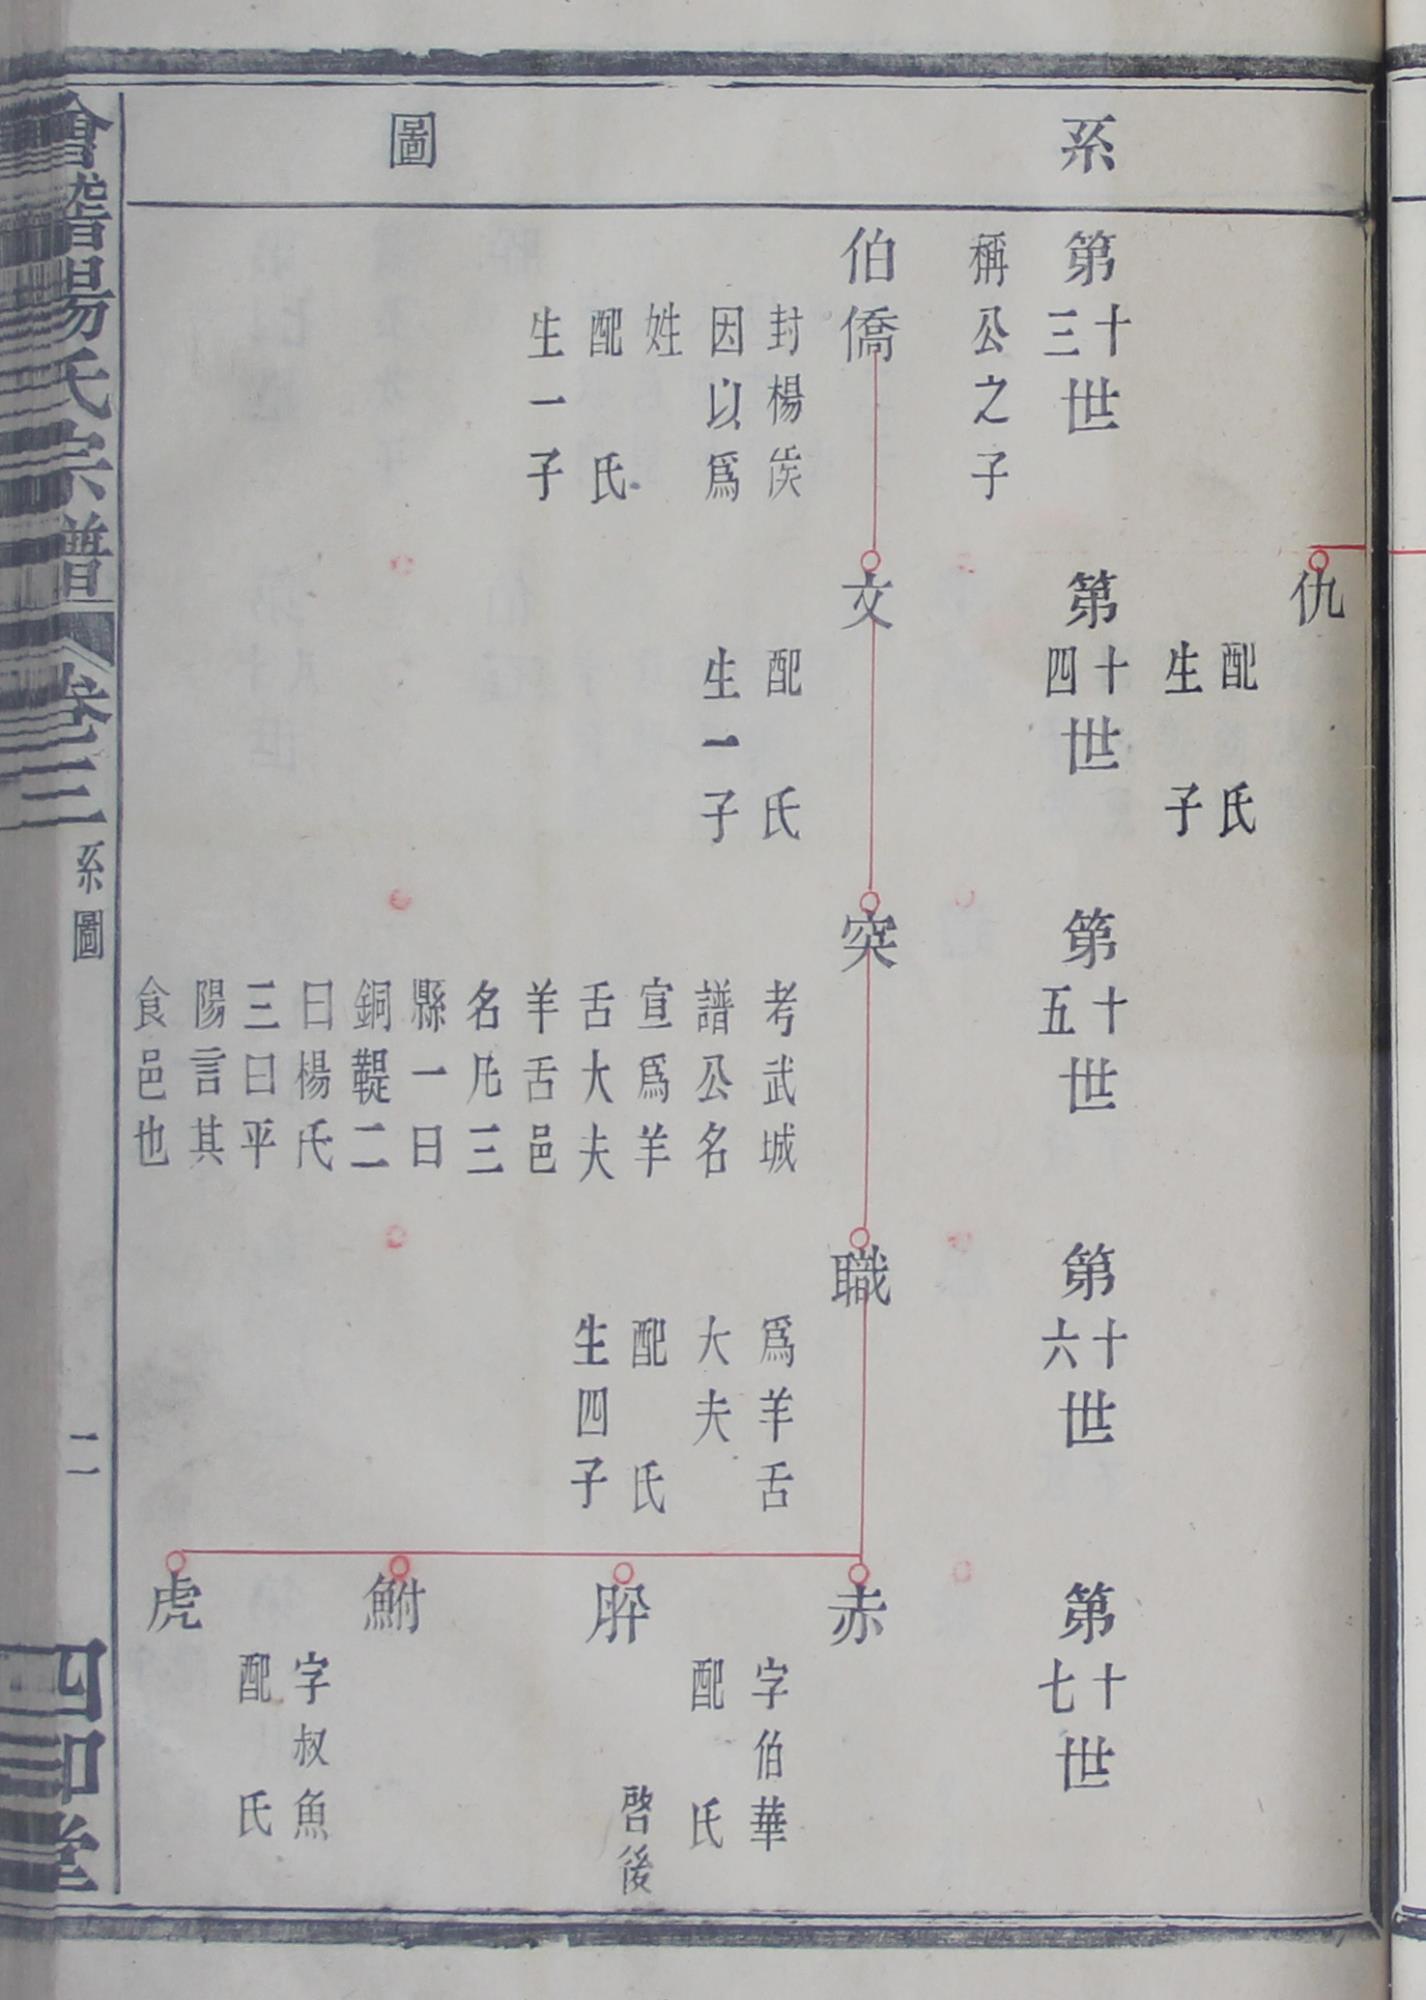 系圖
仇
配 氏
生 子
第十三世
稱公之子
伯僑
封楊侯
因以爲
姓
配 氏
生一子
第十四世
文
配 氏
生一子
第十五世
突
考武城
譜公名
宣爲羊
舌大夫
羊舌邑
名凡三
縣一曰
銅鞮二
曰楊氏
三曰平
陽言其
食邑也
第十六世
職
爲羊舌
大夫
配 氏
生四子
第十七世
赤
字伯華
配 氏
肸
啓後
鮒
字叔魚
配 氏
虎
會稽楊氏宗譜
卷三
系圖
二
四知堂